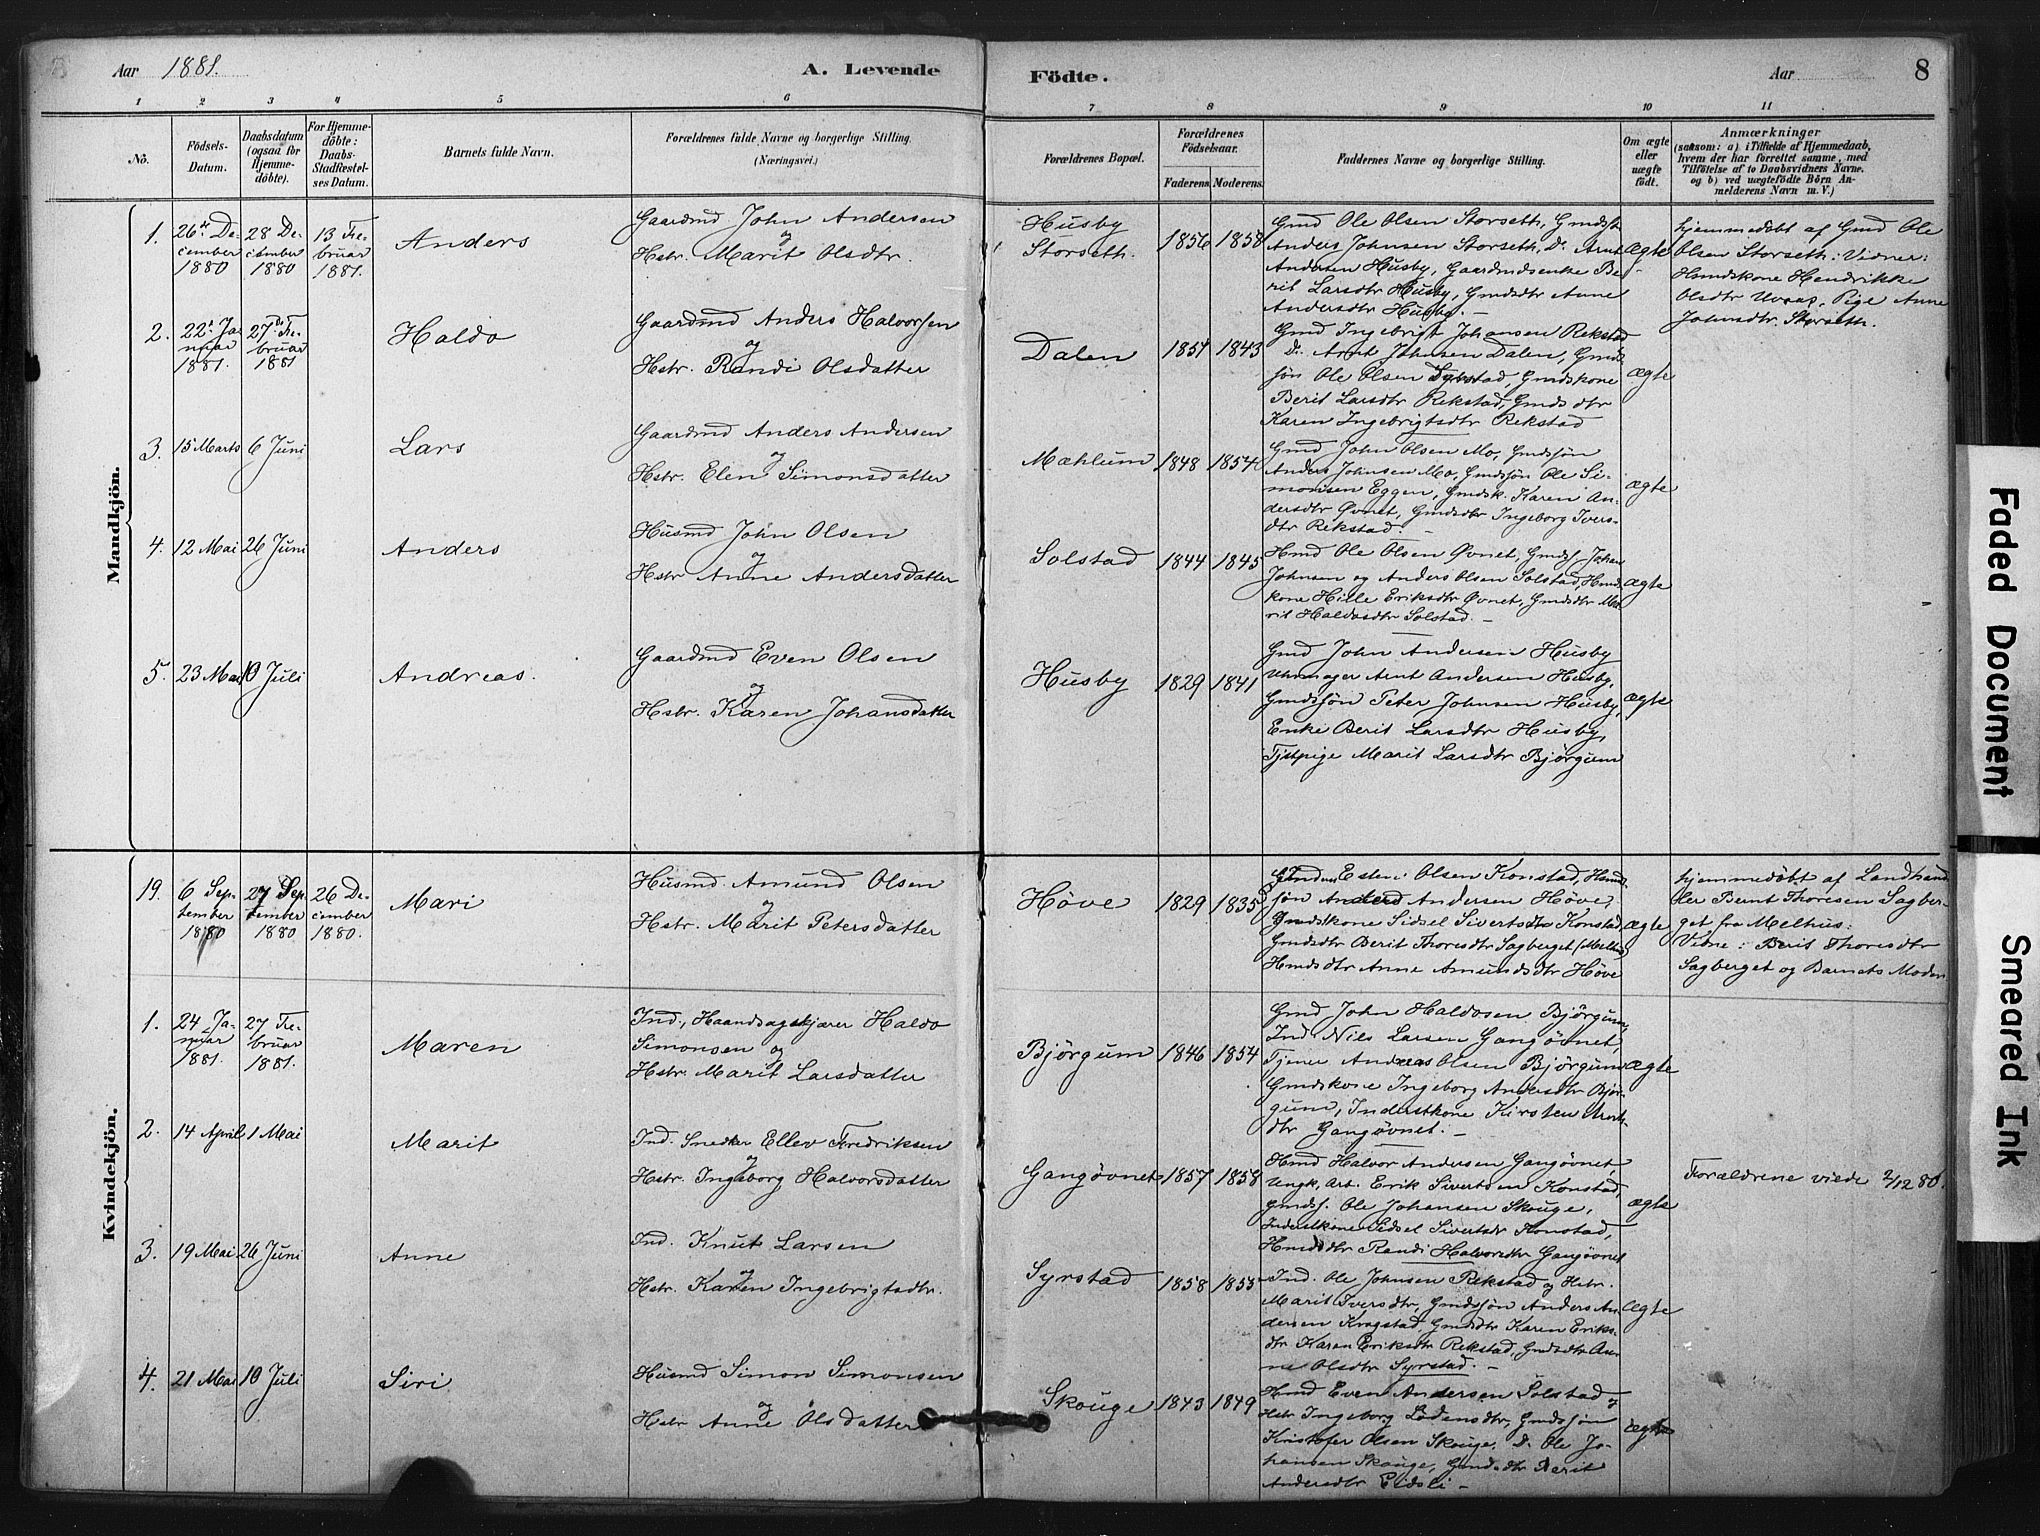 Aar 1881.
A. Levende
Födte.
Aar
8
1 2 3 4 5 6 7 8 9 10 11
No.
Födsels-
Datum.
Daabsdatum
(ogsaa for
Hjemme-
döbte).
For Hjemme-
döbte:
Daabs-
Stadfestel-
ses Datum.
Barnets fulde Navn.
Forældrenes fulde Navne og borgerlige Stilling.
(Næringsvei.)
Forældrenes Bopæl.
Forældrenes
Födselsaar.
Faderens. Moderens.
Faddernes Navne og borgerlige Stilling.
Om ægte
eller
uægte
födt.
Anmærkninger
(saasom: a) i Tilfælde af Hjemmedaab,
hvem der har forrettet samme, med
Tilföielse af to Daabsvidners Navne.
og b) ved uægtefödte Börn An-
melderens Navn m. V.)
Mandkjön.
1.
26de De-
cember
1880
28 De-
cember
1880
13 Fe-
bruar
1881.
Anders
Gaardmd John Andersen
og
Hstr. Marit Olsdtr.
Husby
Storseth.
1856 1858
Gmd Ole Olsen Storseth, Gmdss.
Anders Johnsen Storseth, Do. Arnt
Andersen Husby, Gaardmdsenke Be-
rit Larsdtr Husby, Gmdsdtr Anne
Andersdtr Husby. –
Ægte
hjemmedøbt af Gmd Ole
Olsen Storseth: Vidner:
Hmdskone Hendrikke
Olsdtr, Pige Anne
Johnsdtr. Storseth.
2.
22de Ja-
nuar
1881.
27de Fe-
bruar
1881
Haldo
Gaardmd Anders Halvorsen
og
Hstr. Randi Olsdatter
Dalen
1851 1843
Gmd Ingebrigt Johansen Rekstad
Do. Arnt Johnsen Dalen, Gmd-
søn Ole Olsen Syrstad, Gmdskone
Berit Larsdtr Rekstad, Gmdsdtr
Karen Ingebrigtsdtr Rekstad
ægte
3.
15 Marts
6 Juni
Lars
Gaardmd Anders Andersen
og
Hstr. Elen Simonsdatter
Mæhlum
1848 1854
Gmd John Olsen Mo, Gmdsøn
Anders Johnsen Mo, Gmdsøn Ole Si-
monsen Eggen, Gmdsk. Karen An-
dersdtr Øvnet, Gmdsdtr Ingeborg Ivers-
dtr Rekstad –
ægte
4.
12 Mai
26 Juni
Anders
Husmd John Olsen
og
Hstr Anne Andersdatter
Solstad
1844 1845
Hmd Ole Olsen Øvnet, Gmdss. Johan
Johnsen og Anders Olsen Solstad, Hmd-
kone Hille Eriksdtr Øvnet, Gmdsdtr Ma-
rit Haldosdtr Solstad. –
ægte
5.
23 Mai
10 Juli
Andreas.
Gaardmd Even Olsen
og
Hstr. Karen Johansdatter
Husby
1829 1841
Gmd John Andersen Husby
Uhrmager Arnt Andersen Husby,
Gmdssøn Peter Johnsen Husby,
Enke Berit Larsdtr Husby,
Tjstpige Marit Larsdtr Bjørgum
ægte
Kvindekjön.
19.
6 Sep-
tember
1880
27 Sep-
tember
1880
26 De-
cember
1880.
Mari
Husmd. Amund Olsen
og
Hstr. Marit Petersdatter
Höve
1829 1835
Esten Olsen Konstad, Hmd-
søn Anders Andersen Höve,
Gmdskone Sidsel Sivertsdtr Konstad
Gmdsdtr Berit Thoresdtr Sagberget (Melhus)
Hmdsdtr Anne Amundsdtr Höve
ægte
hjemmedøbt af Landhand-
ler Bernt Thoresen Sagber-
get fra Melhus:
Vidne: Berit Thoresdtr
Sagberget og Barnets Moder
1.
24 Ja-
nuar
1881.
27 Fe-
bruar
1881.
Maren
Ind., Haandsagskjærer Haldo
Simonsen og
Hstr. Marit Larsdatter
Bjørgum
1846 1854
Gmd John Haldosen Bjørgum,
Ind Nils Larsen Gangøvnet,
Tjener Andreas Olsen Bjørgum
Gmdskone Ingeborg Andersdtr Bjør-
gum, Inderstkone Kirsten Arnts-
dtr Gangøvnet. –
ægte
2.
14 April
1 Mai
Marit
Ind. Snedker Ellev Fredriksen
og
Hstr. Ingeborg Halvorsdatter
Gangøvnet
1857 1858
Hmd Halvor Andersen Gangøvnet,
Ungk. Art. Erik Sivertsen Konstad,
Gmdss. Ole Johansen Skouge,
Inderstkone Sidsel Sivertsdtr Konstad,
Hmdsdtr Randi Halvorsdtr Gangøvnet
ægte
Forældrene viede 2/12 80.
3.
19 Mai
26 Juni
Anne
Ind. Knut Larsen
og
Hstr. Karen Ingebrigtsdtr.
Syrstad
1858 1855
Ind. Ole Johnsen Rekstad og Hstr.
Marit Iversdtr, Gmdssøn Anders An-
dersen Kregstad, Gmdsdtr Karen Eriks-
dtr Karen Eriksdtr Rekstad, Gmdsdtr An-
ne Olsdtr Syrstad. –
Ægte
4.
21 Mai
10 Juli
Siri
Husmd Simon Simonsen
og
Hstr Anne Olsdatter
Skouge
1843 1849
Hmd Even Andersen Solstad og
Hstr Ingeborg Lodensdtr, Gmdssøn
Kristofer Olsen Skouge, Do. Ole Jo-
hansen Skouge, Gmdsdtr Berit
Andersdtr Eidsli –
ægte
Faded Document
Smeared Ink